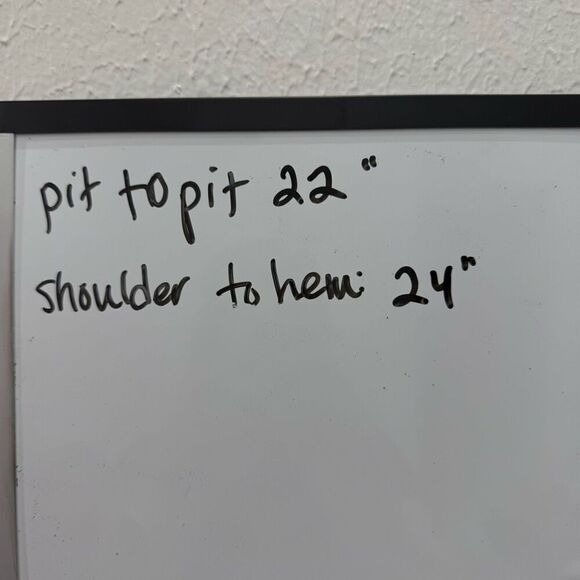 pit to pit 22"
shoulder to hem: 24"